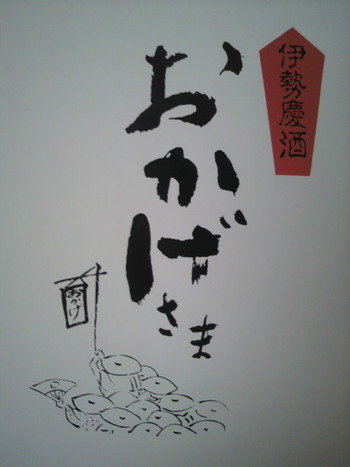 伊勢慶酒
おかげさま
おかげ